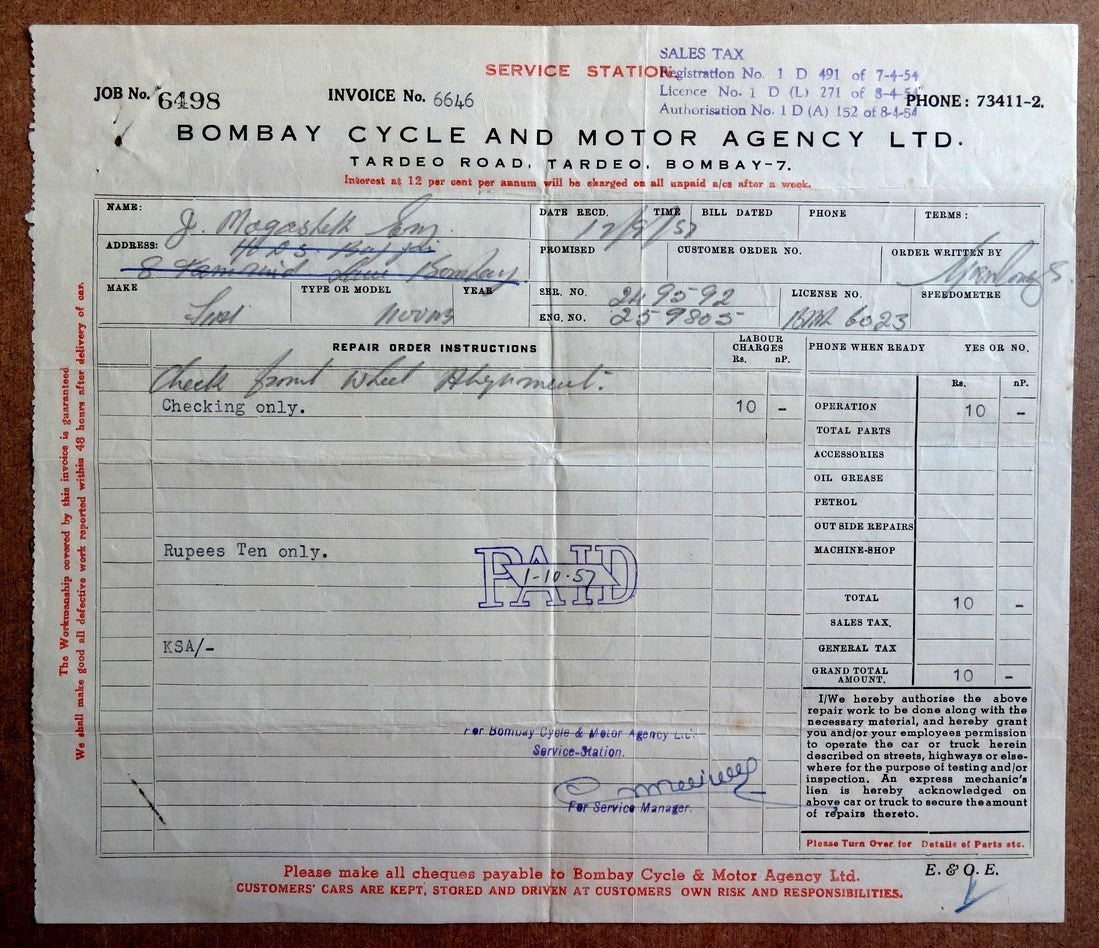 SALES TAX
SERVICE STATION Registration No. 1 D 491 of 7-4-54
JOB No. 6498 INVOICE No. 6646 Licence No. 1 D (L) 271 of 8-4-54 PHONE: 73411-2.
Authorisation No. 1 D (A) 152 of 8-4-54
BOMBAY CYCLE AND MOTOR AGENCY LTD.
TARDEO ROAD, TARDEO, BOMBAY-7.
Interest at 12 per cent per annum will be charged on all unpaid a/cs after a week.
NAME: J. DATE RECD. 12/9/57 TIME BILL DATED PHONE TERMS:
ADDRESS: PROMISED CUSTOMER ORDER NO. ORDER WRITTEN BY
8 Bombay
MAKE TYPE OR MODEL YEAR SER. NO. 249592 LICENSE NO. SPEEDOMETRE
ENG. NO. 259805 BMR 6023
REPAIR ORDER INSTRUCTIONS LABOUR CHARGES Rs. nP. PHONE WHEN READY YES OR NO.
Check front wheel Alignment. Rs. nP.
Checking only. 10 - OPERATION 10 -
TOTAL PARTS
ACCESSORIES
OIL GREASE
PETROL
OUT SIDE REPAIRS
Rupees Ten only. MACHINE-SHOP
PAID
1-10-57
TOTAL 10 -
SALES TAX.
KSA/- GENERAL TAX
GRAND TOTAL AMOUNT. 10 -
I/We hereby authorise the above
repair work to be done along with the
necessary material, and hereby grant
you and/or your employees permission
to operate the car or truck herein
described on streets, highways or else-
where for the purpose of testing and/or
inspection. An express mechanic's
lien is hereby acknowledged on
above car or truck to secure the amount
of repairs thereto.
For Bombay Cycle & Motor Agency Ltd.
Service-Station.
For Service Manager.
Please Turn Over for Details of Parts etc.
Please make all cheques payable to Bombay Cycle & Motor Agency Ltd. E. & O. E.
CUSTOMERS' CARS ARE KEPT, STORED AND DRIVEN AT CUSTOMERS OWN RISK AND RESPONSIBILITIES.
The Workmanship covered by this invoice is guaranteed
We shall make good all defective work reported within 48 hours after delivery of car.